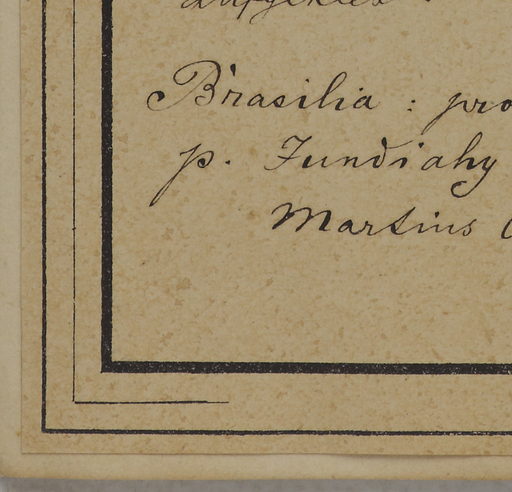 Brasilia : pro
p. Jundiahy
Martius